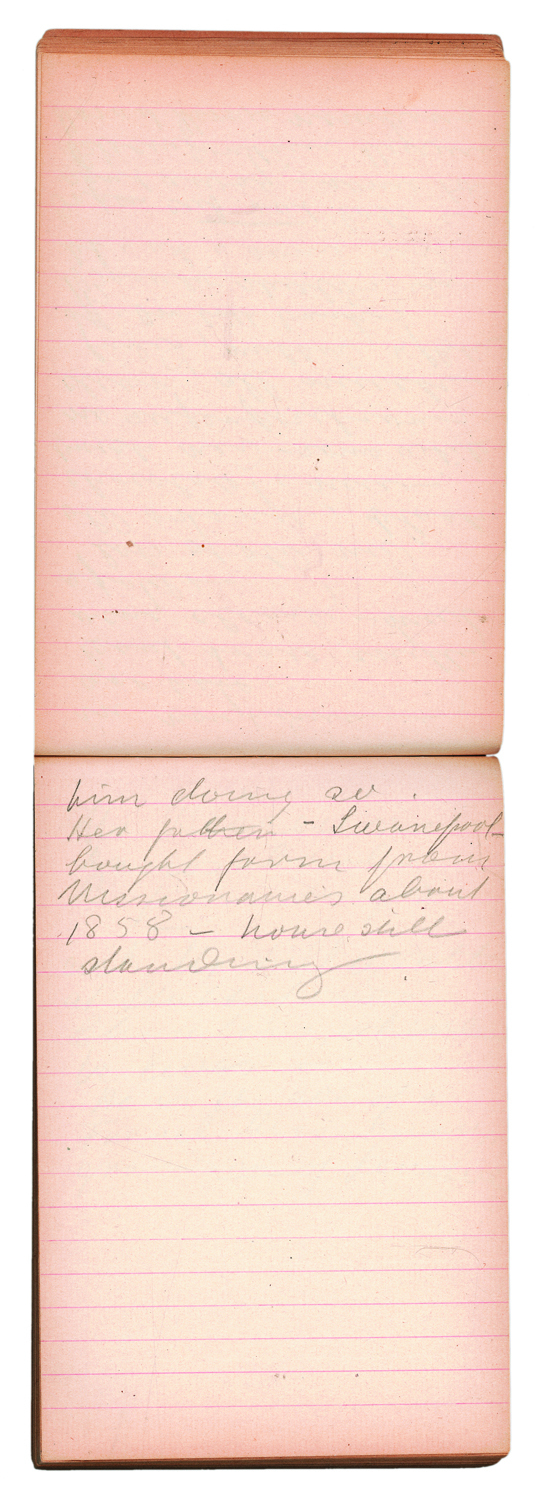 him doing so.
Her father - Swanepoel
bought farm from
Missionaries about
1858 - house still
standing